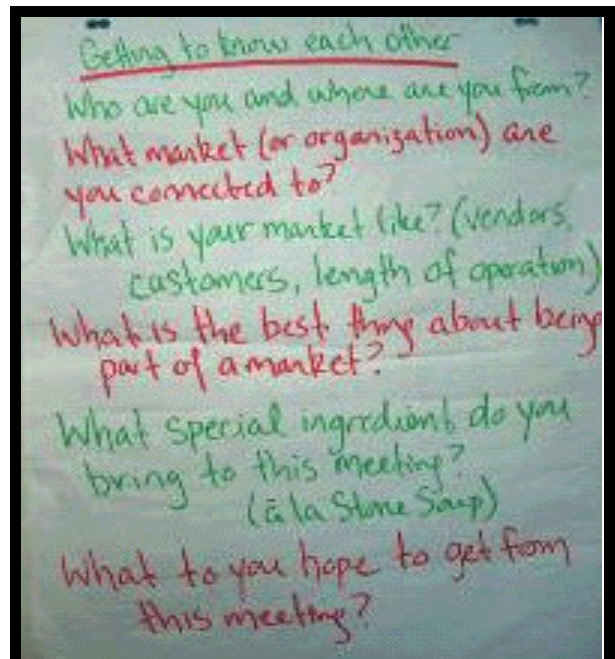 Getting to know each other
Who are you and where are you from?
What market (or organization) are
you connected to?
What is your market like? (vendors,
customers, length of operation)
What is the best thing about being
part of a market?
What special ingredient do you
bring to this meeting?
(à la Stone Soup)
What to you hope to get from
this meeting?